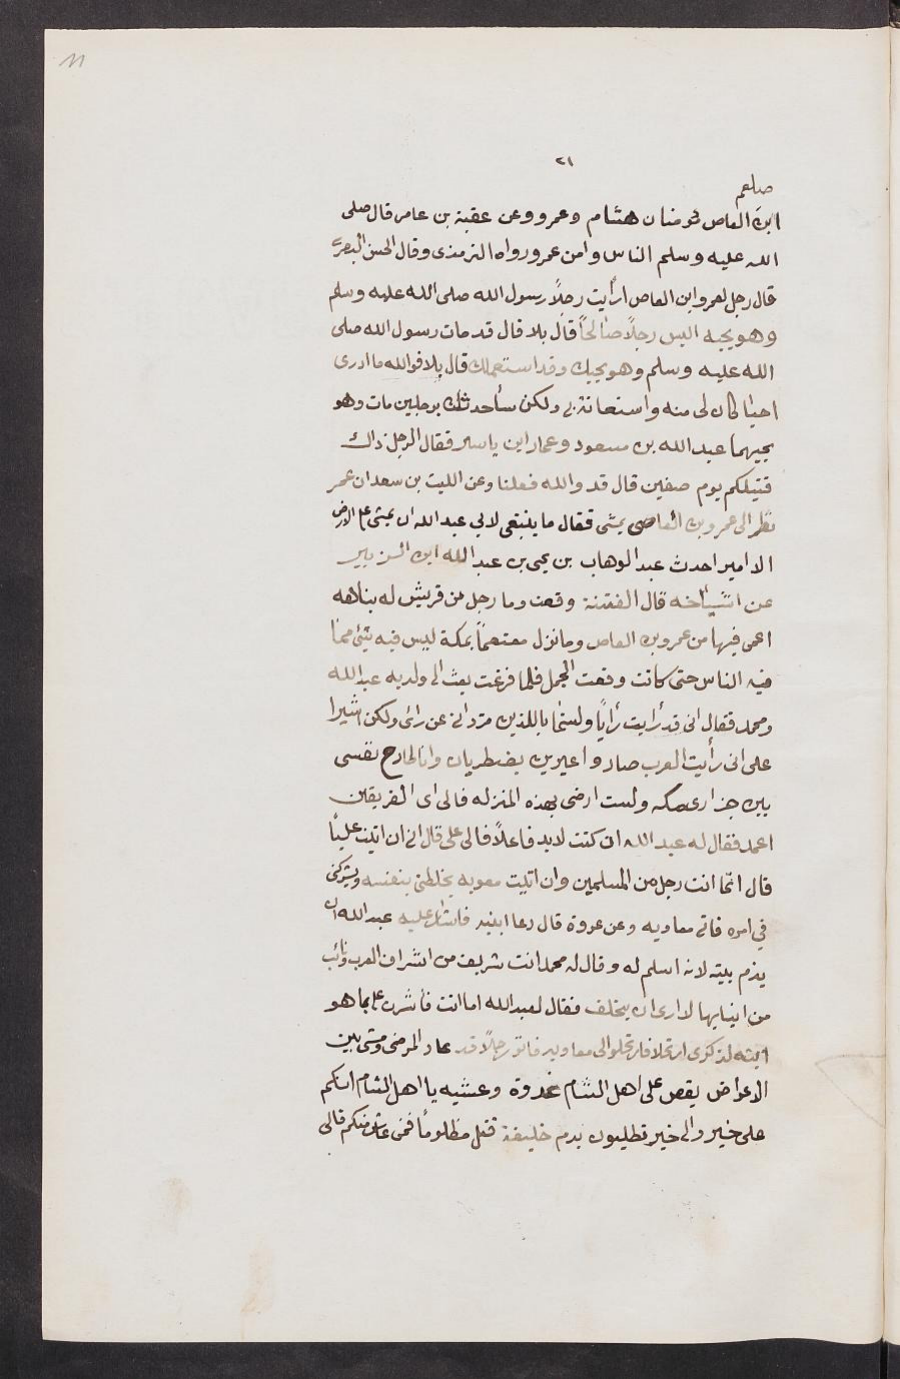 11
٢١
صلعم
ابن العاص مومنان هشام وعمرو وعن عقبة بن عامر قال صلى
الله عليه وسلم الناس وامن عمرو رواه الترمذى وقال الحسن البصرى
قال رجل لعمرو ابن العاص ارأيت رجلاً رسول الله صلى الله عليه وسلم
وهو يحبه اليس رجلاً صالحاً قال بلا قال قد مات رسول الله صلى
الله عليه وسلم وهو يحبك وقد استعملك قال بلا فوالله ما ادرى
احبا كان لى منه واستعانة بى ولكن سأحدثك برجلين مات وهو
يحبهما عبد الله بن مسعود وعمار ابن ياسر فقال الرجل ذاك
قتيلكم يوم صفين قال قد والله فعلنا وعن الليث بن سعد ان عمر
نظر الى عمرو بن العاصى يمشى فقال ما ينبغى لابى عبد الله ان يمشى على الارض
الا امير احدث عبد الوهاب بن يحى بن عبد الله ابن الزبير
عن اشياخه قال الفتنة وقعت وما رجل من قريش له بناهه
اعمى فيها من عمرو بن العاص وما نزل معتصماً بمكة ليس فيه شئ مما
فيه الناس حتى كانت وقعت الجمل فلما فرغت بعث الى ولديه عبد الله
ومحمد فقال انى قد رأيت رأياً ولستما باللذين تردانى عن رائى ولكن اشيرا
على انى رأيت العرب صاروا عيرين يضطربان وانا طارح نفسى
بين جزارى مكه ولست ارضى بهذه المنزله فالى اى الفريقين
اعمد فقال له عبد الله ان كنت لابد فاعلاً فالى على قال انى ان اتيت علياً
قال انما انت رجل من المسلمين وان اتيت معويه يخلطنى بنفسه ويشركنى
فى امره فاتى معاويه وعن عروة قال دعا ابنيه فاشار عليه عبد الله ان
يلزم بيته لانه اسلم له وقال له محمد انت شريف من اشراف العرب وناب
من انيابها لا ارى ان يخلف فقال لعبد الله اما انت فأشرت على بما هو
الى معاويه فاتو رجلاً قد عاد المرضى ومشى بين
الاعراض يقص على اهل الشام غدوة وعشيه يا اهل الشام انكم
على خير والى خير تطلبون بدم خليفة قتل مظلوماً فمن عاش منكم فالى